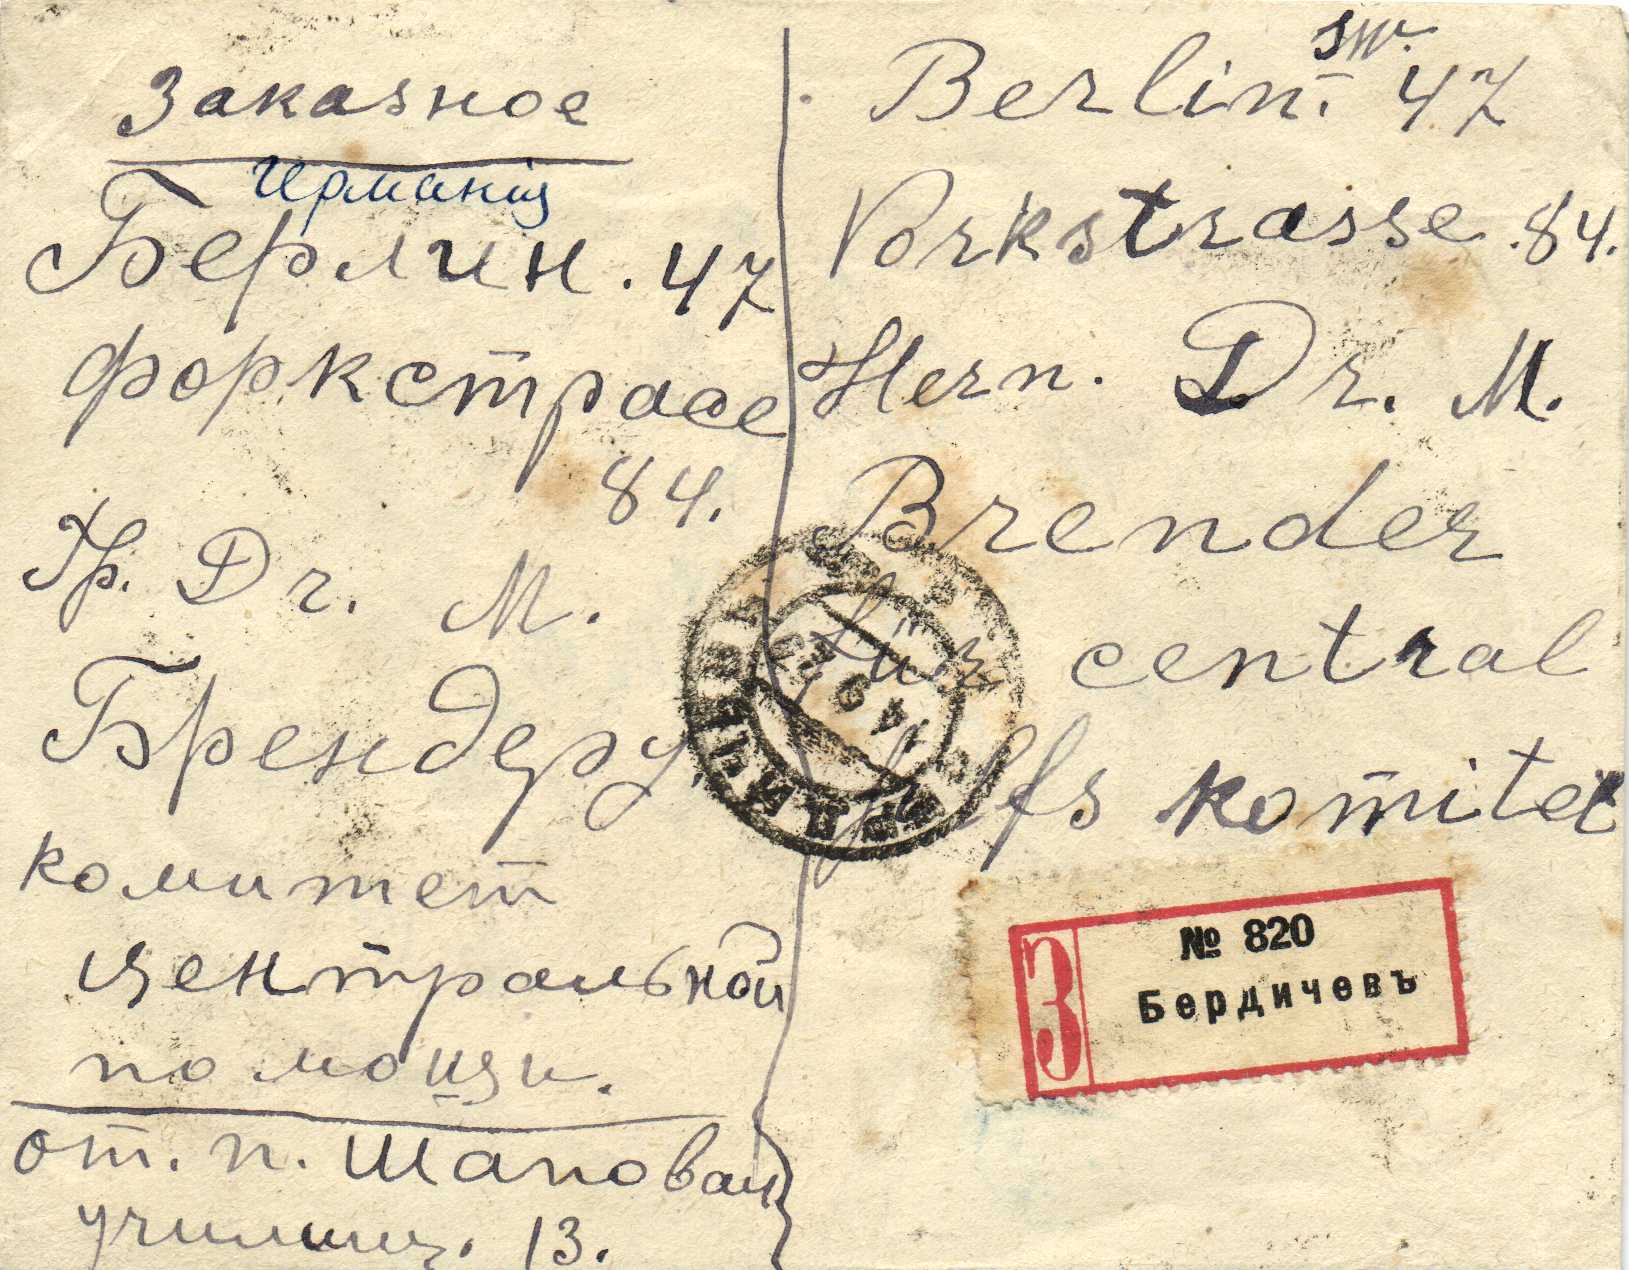 Заказное
Германія
Берлин. 47
форкстрасе
84.
Гр. Dr. M.
Брендеру.
комитет
центральной
помощи.
от. п. Шаповал
училищ. 13.
SW.
Berlin. 47
Vorkstrasse. 84.
Hern. Dr. M.
Brender
für central
hilfs komitet
14 9 22
№ 820
З
Бердичевъ